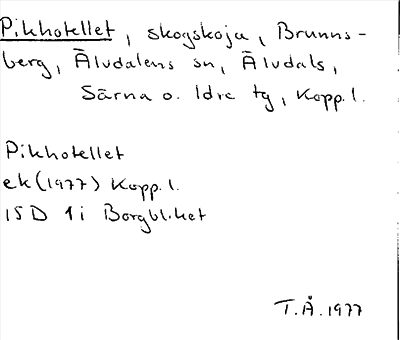 Pikhotellet, skogskoja, Brunns-
berg, Älvdalens sn, Älvdals,
Särna o. Idre tg, Kopp. l.
Pikhotellet
ek (1977) Kopp. l.
15 D 1 i Borgbliket
T.Å. 1977